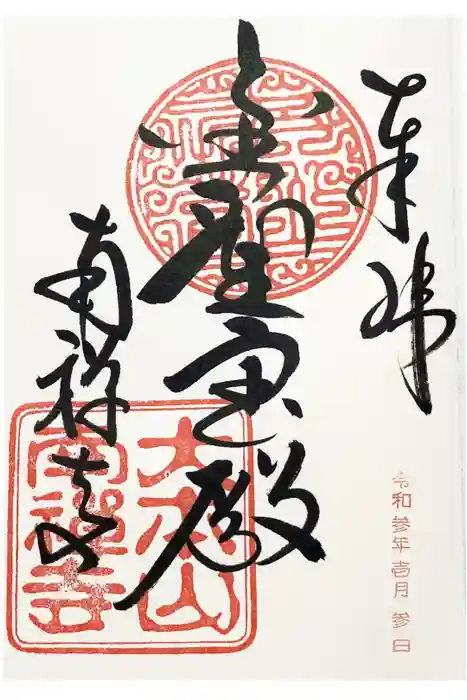 奉拝
令和参年壱月 参日
金剛王宝殿
大本山
南禅寺
南禅寺